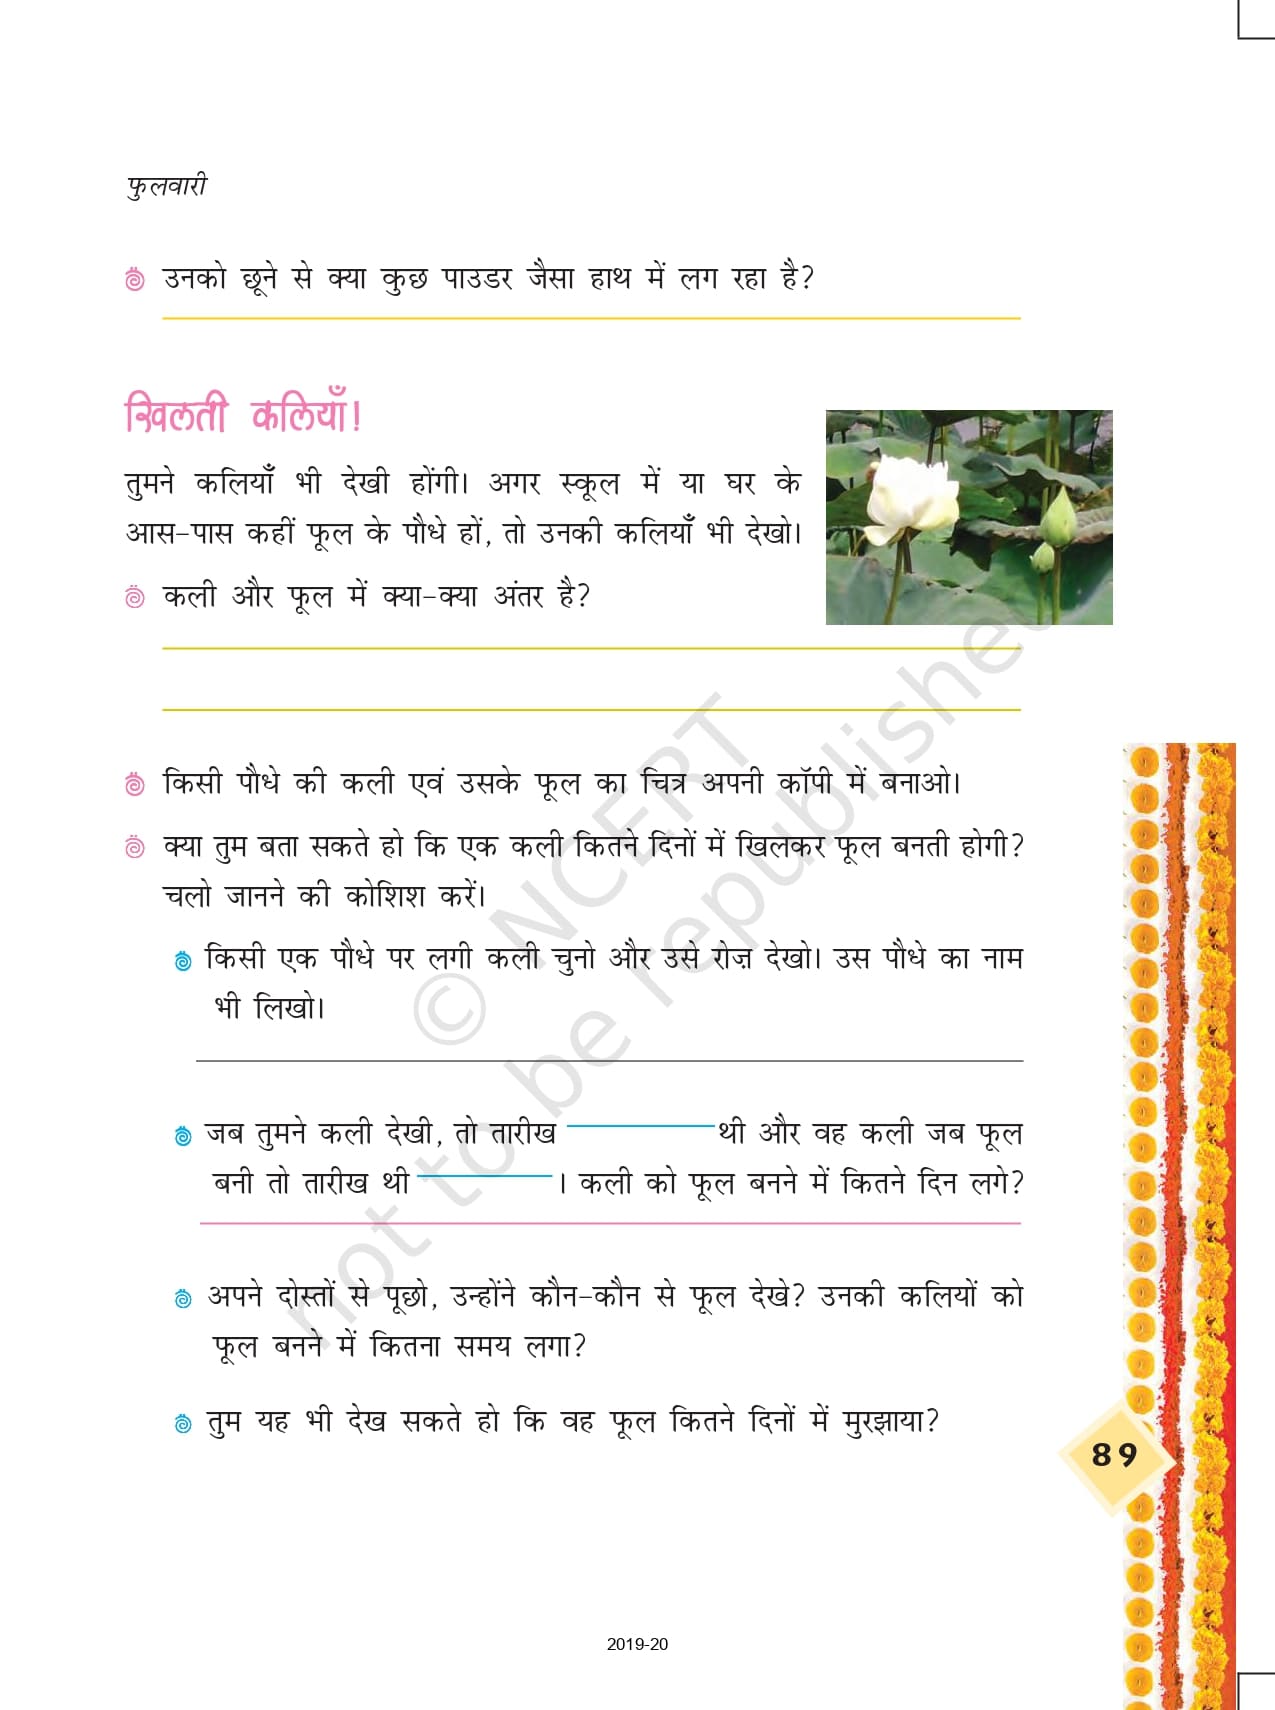 फुलवारी
उनको छूने से क्या कुछ पाउडर जैसा हाथ में लग रहा है?
खिलती कलियाँ!
तुमने कलियाँ भी देखी होंगी। अगर स्कूल में या घर के
आस-पास कहीं फूल के पौधे हों, तो उनकी कलियाँ भी देखो।
कली और फूल में क्या-क्या अंतर है?
किसी पौधे की कली एवं उसके फूल का चित्र अपनी कॉपी में बनाओ।
क्या तुम बता सकते हो कि एक कली कितने दिनों में खिलकर फूल बनती होगी?
चलो जानने की कोशिश करें।
किसी एक पौधे पर लगी कली चुनो और उसे रोज़ देखो। उस पौधे का नाम
भी लिखो।
जब तुमने कली देखी, तो तारीख थी और वह कली जब फूल
बनी तो तारीख थी । कली को फूल बनने में कितने दिन लगे?
अपने दोस्तों से पूछो, उन्होंने कौन-कौन से फूल देखे? उनकी कलियों को
फूल बनने में कितना समय लगा?
तुम यह भी देख सकते हो कि वह फूल कितने दिनों में मुरझाया?
89
2019-20
© NCERT
not to be republished